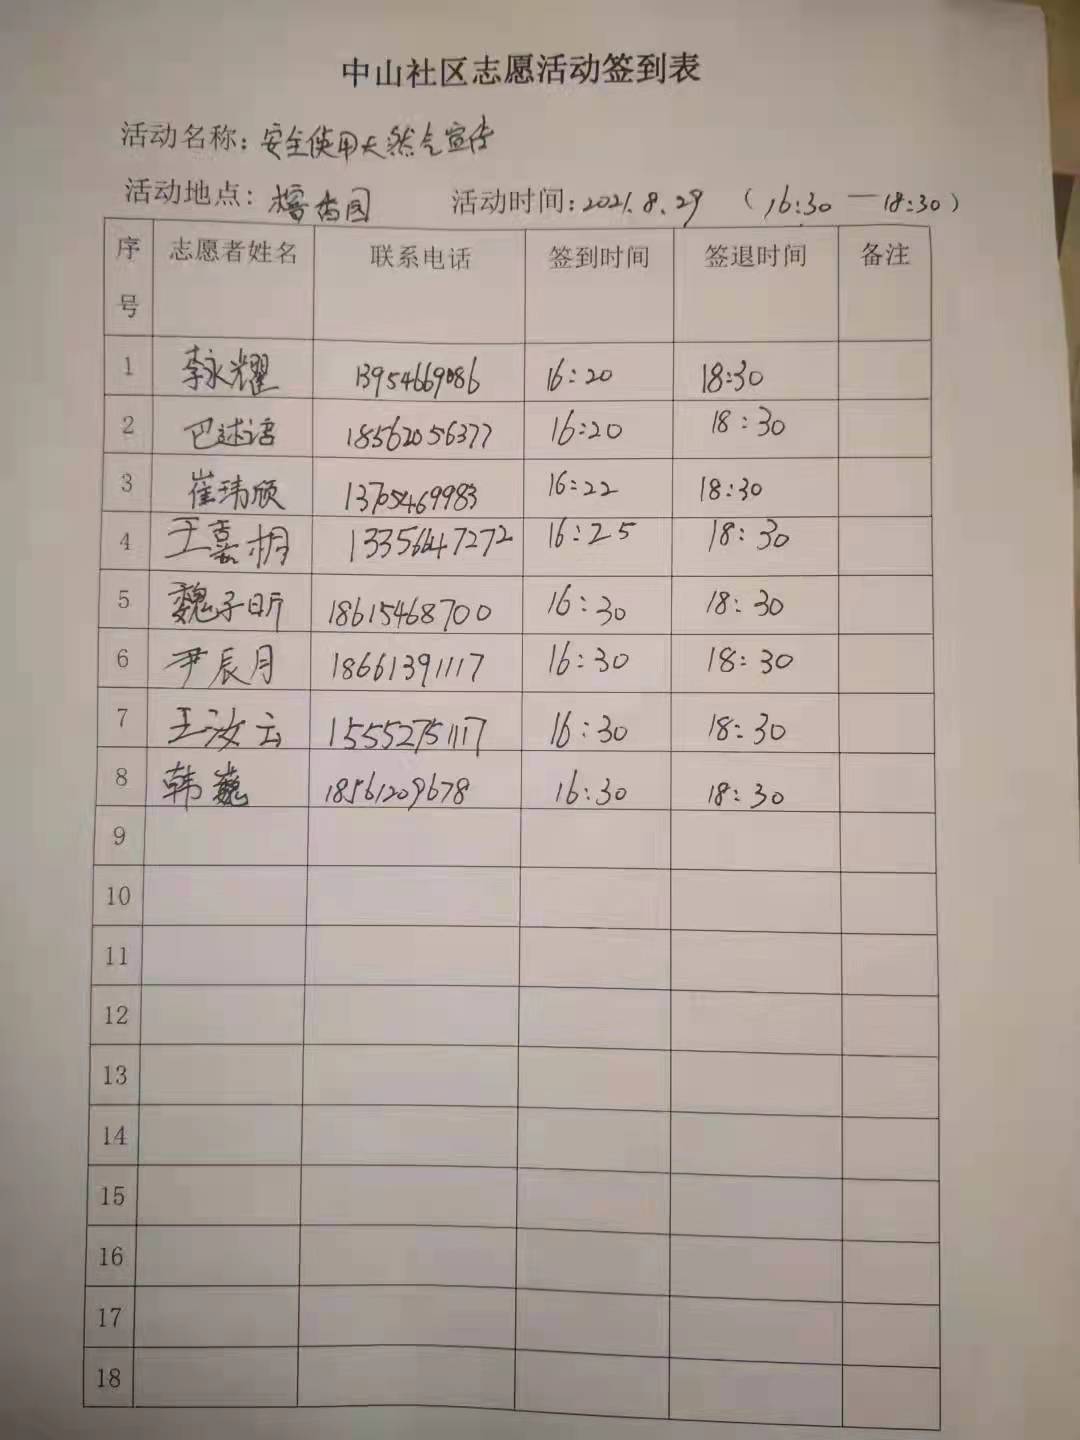 中山社区志愿活动签到表
活动名称：安全使用天然气宣传
活动地点：榕香园 活动时间：2021.8.29 （16:30—18:30）
序号 志愿者姓名 联系电话 签到时间 签退时间 备注
1 李永耀 13954669086 16:20 18:30
2 巴述语 18562056377 16:20 18:30
3 崔玮颀 13705469983 16:22 18:30
4 王嘉桐 13356447272 16:25 18:30
5 魏子昕 18615468700 16:30 18:30
6 尹辰月 18661391117 16:30 18:30
7 王汝云 15552751117 16:30 18:30
8 韩巍 18561209678 16:30 18:30
9
10
11
12
13
14
15
16
17
18